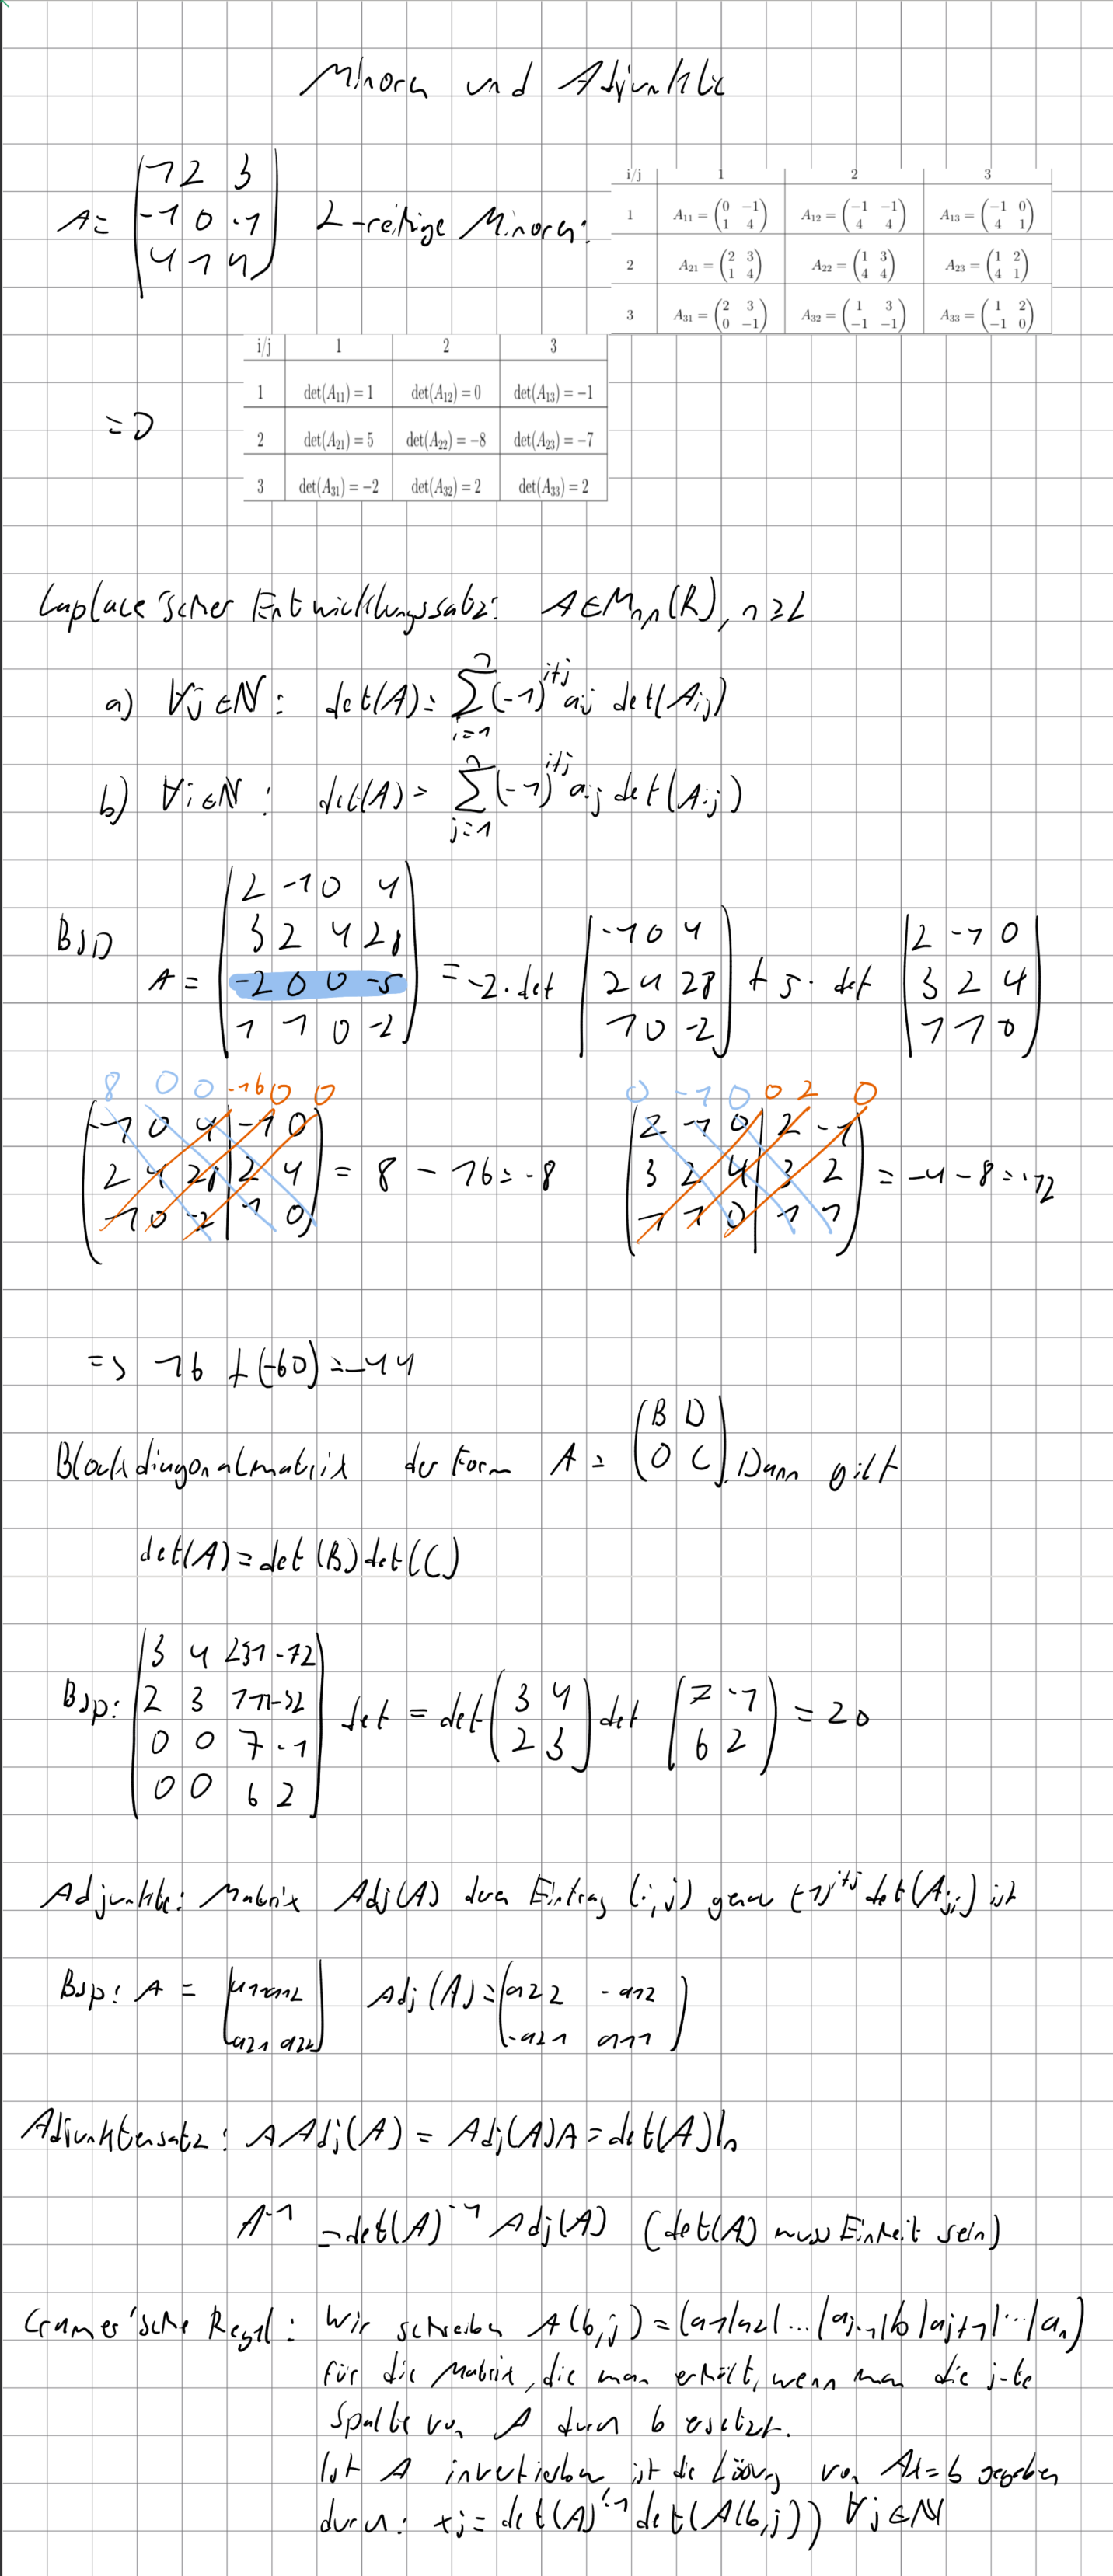 Minoren und Adjunkte
A= (1 2 3 / -1 0 -1 / 4 1 4) 2-reihige Minoren:
i/j 1 2 3
1 A₁₁ = (0 -1 / 1 4) A₁₂ = (-1 -1 / 4 4) A₁₃ = (-1 0 / 4 1)
2 A₂₁ = (2 3 / 1 4) A₂₂ = (1 3 / 4 4) A₂₃ = (1 2 / 4 1)
3 A₃₁ = (2 3 / 0 -1) A₃₂ = (1 3 / -1 -1) A₃₃ = (1 2 / -1 0)
=>
i/j 1 2 3
1 det(A₁₁) = 1 det(A₁₂) = 0 det(A₁₃) = −1
2 det(A₂₁) = 5 det(A₂₂) = −8 det(A₂₃) = −7
3 det(A₃₁) = −2 det(A₃₂) = 2 det(A₃₃) = 2
Laplace'scher Entwicklungssatz: A∈Mₙₙ(R), n ≥ 2
a) ∀j∈N: det(A) = ∑ⁿᵢ₌₁ (-1)^{i+j} aij det(Aij)
b) ∀i∈N: det(A) = ∑ⁿⱼ₌₁ (-1)^{i+j} aij det(Aij)
Bsp A = (2 -1 0 4 / 3 2 4 28 / -2 0 0 -5 / 1 1 0 -2) = -2·det (-1 0 4 / 2 4 28 / 1 0 -2) + 5· det (2 -1 0 / 3 2 4 / 1 1 0)
8 0 0 -16 0 0 0 -1 0 0 2 0
(-1 0 4 | -1 0 / 2 4 28 | 2 4 / 1 0 -2 | 1 0) = 8 - 16 = -8 (2 -1 0 | 2 -1 / 3 2 4 | 3 2 / 1 1 0 | 1 1) = -4 - 8 = -12
=> 16 + (-60) = -44
Blockdiagonalmatrix der Form A = (B D / 0 C). Dann gilt
det(A) = det(B) det(C)
Bsp: (3 4 231 -12 / 2 3 111 -32 / 0 0 7 -1 / 0 0 6 2) det = det (3 4 / 2 3) det (7 -1 / 6 2) = 20
Adjunkte: Matrix Adj(A) deren Eintrag (i,j) genau (-1)^{i+j} det(Aji) ist
Bsp: A = (a11 a12 / a21 a22) Adj(A) = (a22 -a12 / -a21 a11)
Adjunktensatz: A Adj(A) = Adj(A)A = det(A)Iₙ
A⁻¹ = det(A)⁻¹ Adj(A) (det(A) muss Einheit sein)
Cramer'sche Regel: Wir schreiben A(b,j) = (a1|a2|...|aj-1|b|aj+1|...|an)
für die Matrix, die man erhält, wenn man die j-te
Spalte von A durch b ersetzt.
Ist A invertierbar, ist die Lösung von Ax=b gegeben
durch: xj = det(A)⁻¹ det(A(b,j)) ∀j∈N